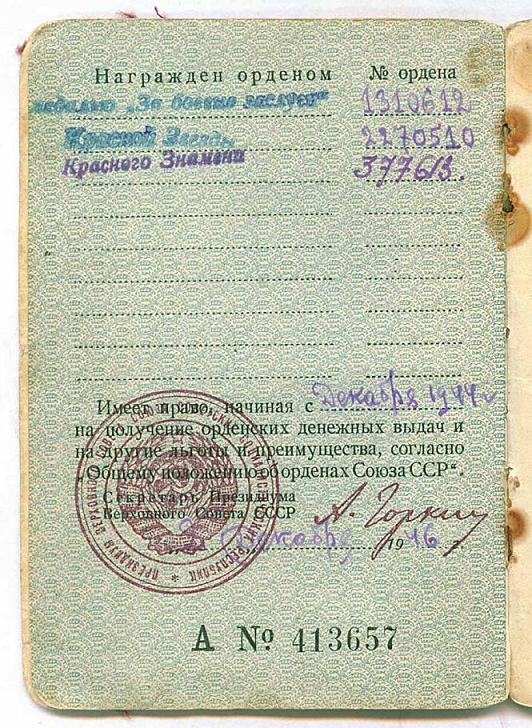 Награжден орденом № ордена
медалью „За боевые заслуги" 1310612
Красной Звезды 2270510
Красного Знамени 377613.
Имеет право, начиная с Декабря 1944 г
на получение орденских денежных выдач и
на другие льготы и преимущества, согласно
„Общему положению об орденах Союза ССР".
Секретарь Президиума
Верховного Совета ССCP А. Горкин
3 Декабря 1946 г.
А № 413657